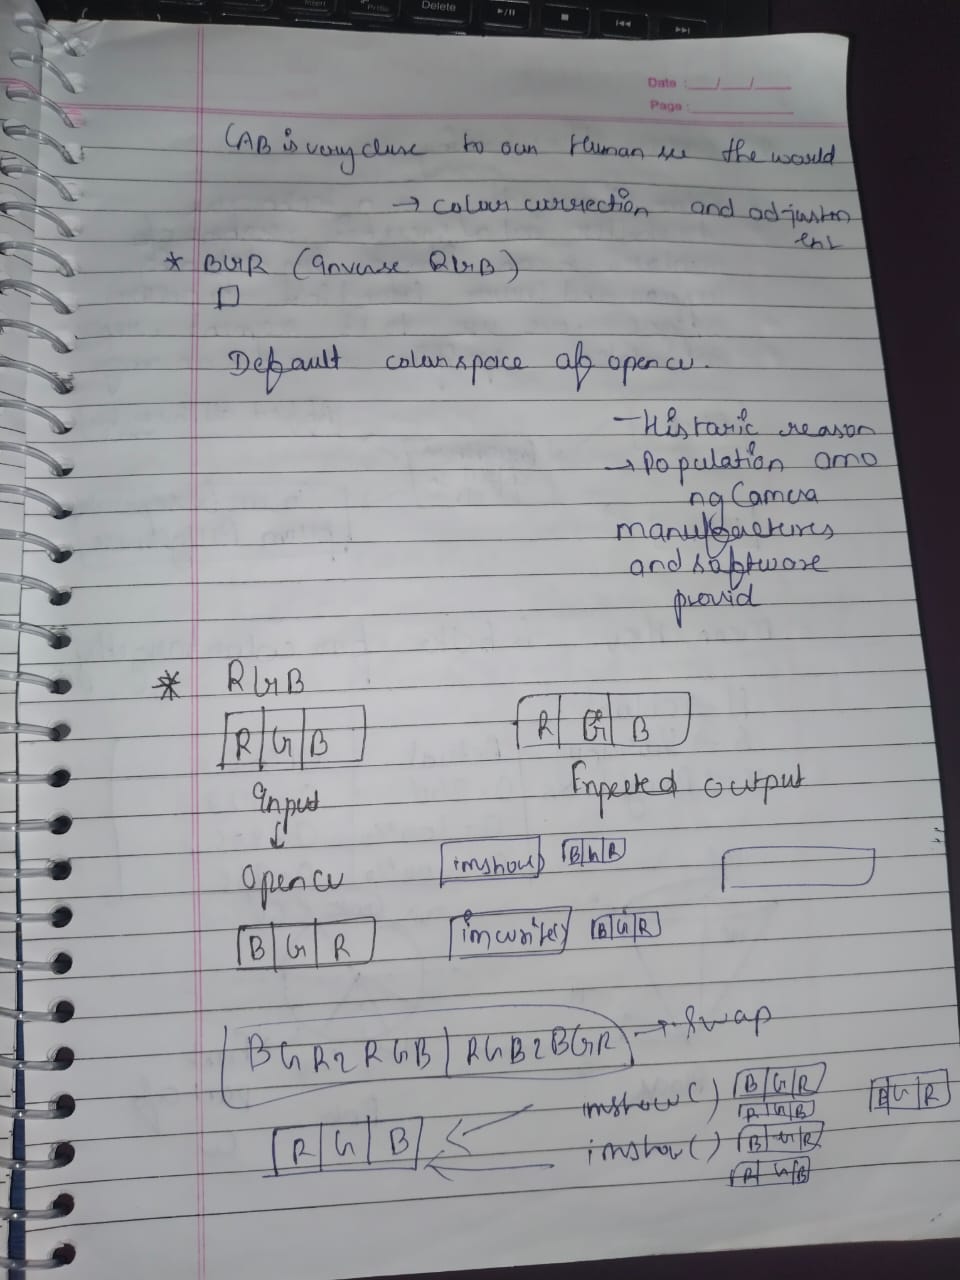 Insert
PrtSc
Delete
Date :
Page :
LAB is very close to own Human see the would
→ colour currection and adjustm
ent
* BGR (Inverse RGB)
Default colour space of opencv.
- Historic reason
→ Population amo
ng Camera
manufactures
and software
provid
* RGB
R G B
R G B
Input
Enpected output
↓
Opencv
imshow) B G R
B G R
imwrite() B G R
BGR2RGB | RGB2BGR → Swap
imshow() B G R
R G B
B G R
R G B
imshow() B G R
R G B